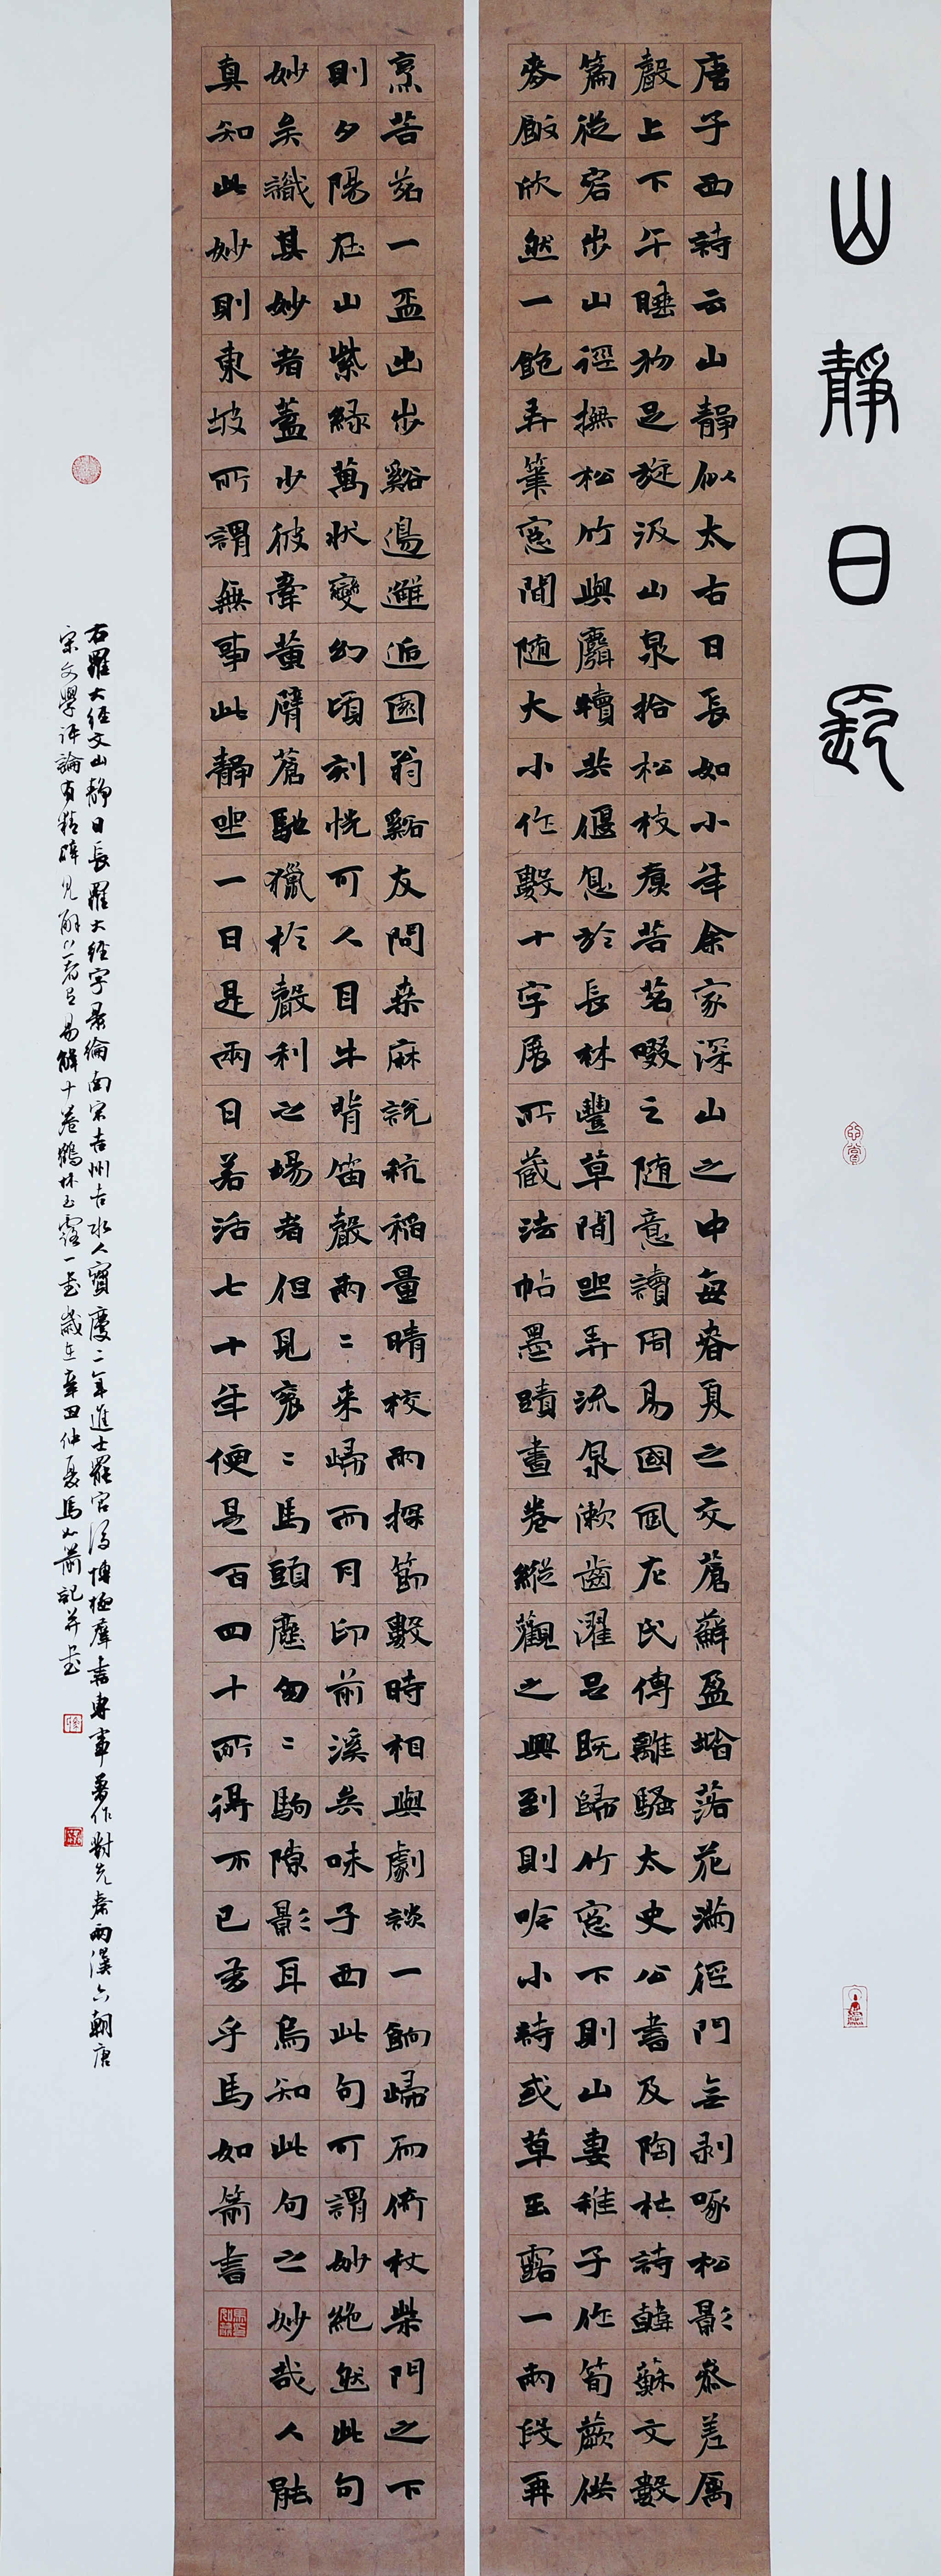 山靜日長
唐子西詩云山靜似太古日長如小年余家深山之中每春夏之交蒼蘚盈堦落花滿徑門無剥啄松影參差禽
聲上下午睡初足旋汲山泉拾松枝煮苦茗啜之随意讀周易國風左氏傳離騷太史公書及陶杜詩韓蘇文數
篇從容步山徑撫松竹與麛犢共偃息於長林豐草間坐弄流泉漱齒濯足既歸竹窓下則山妻稚子作筍蕨供
麥飯欣然一飽弄筆窓間随大小作數十字展所藏法帖墨蹟畫卷縱觀之興到則吟小詩或草玉露一兩段再
烹苦茗一盃出步谿邊邂逅園翁谿友問桑麻說秔稲量晴校雨探節數時相與劇談一餉歸而倚杖柴門之下
則夕陽在山紫緑萬状變幻頃刻恍可人目牛背笛聲兩〻来歸而月印前溪矣味子西此句可謂妙絶然此句
妙矣識其妙者蓋少彼牽黃臂蒼馳獵於聲利之場者但見衮〻馬頭塵匆〻駒隙影耳烏知此句之妙哉人能
真知此妙則東坡所謂無事此靜坐一日是兩日若活七十年便是百四十所得不已多乎馬如箭書
右羅大經文山靜日長羅大經字景綸南宋吉州吉水人寶慶二年進士罷官後博極群書專事著作對先秦兩漢六朝唐
宋文學評論有精辟見解著有易解十卷鶴林玉露一書歲在辛丑仲夏馬如箭記并書